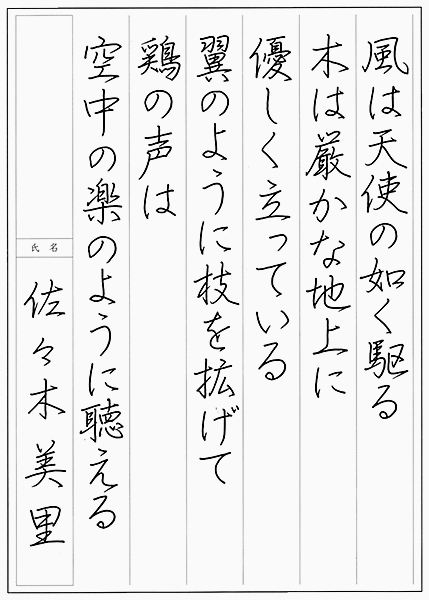 風は天使の如く駆る
木は厳かな地上に
優しく立っている
翼のように枝を拡げて
鶏の声は
空中の楽のように聴える
氏名
佐々木美里